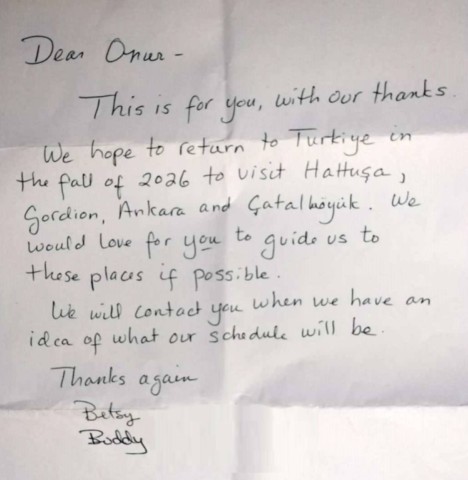 Dear Onur -
This is for you, with our thanks.
We hope to return to Turkiye in
the fall of 2026 to visit Hattuşa,
Gordion, Ankara and Çatalhöyük. We
would love for you to guide us to
these places if possible.
We will contact you when we have an
idea of what our schedule will be.
Thanks again
Betsy
Buddy